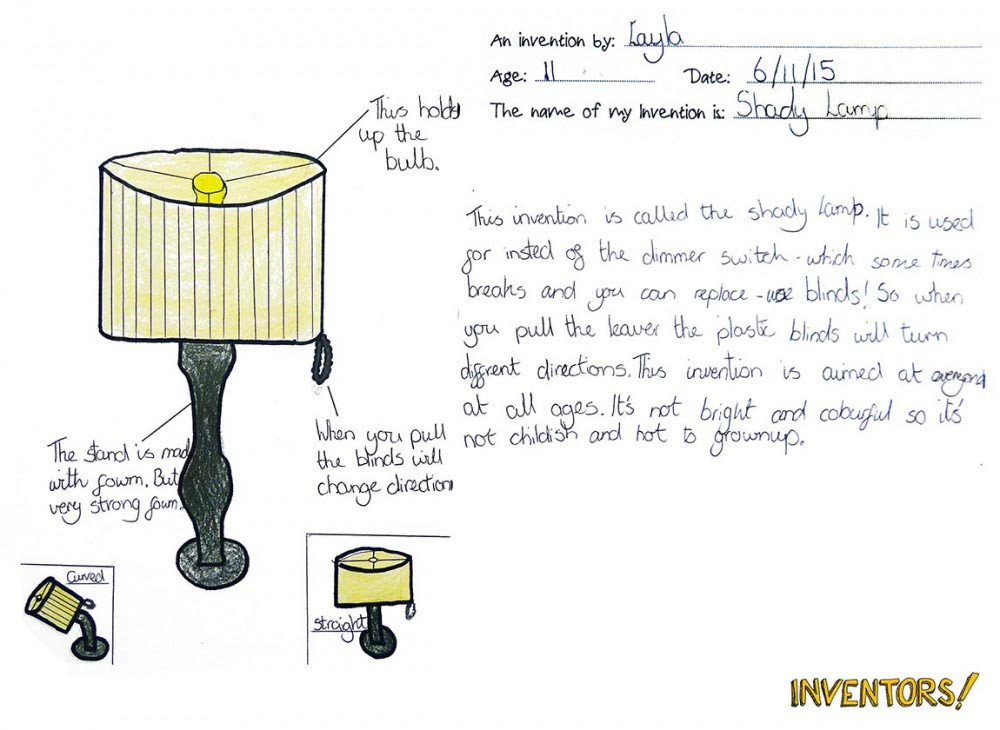 An invention by: Layla
Age: 11 Date: 6/11/15
The name of my Invention is: Shady Lamp
This holds
up the
bulb.
This invention is called the shady Lamp. It is used
for insted of the dimmer switch - which some times
breaks and you can replace - use blinds! So when
you pull the leaver the plastic blinds will turn
diffrent directions. This invention is aimed at everyone
at all ages. It's not bright and colourful so it's
not childish and not to grownup.
When you pull
the blinds will
change direction
The stand is mad
with fowm. But
very strong fowm.
Curved
straight
INVENTORS!